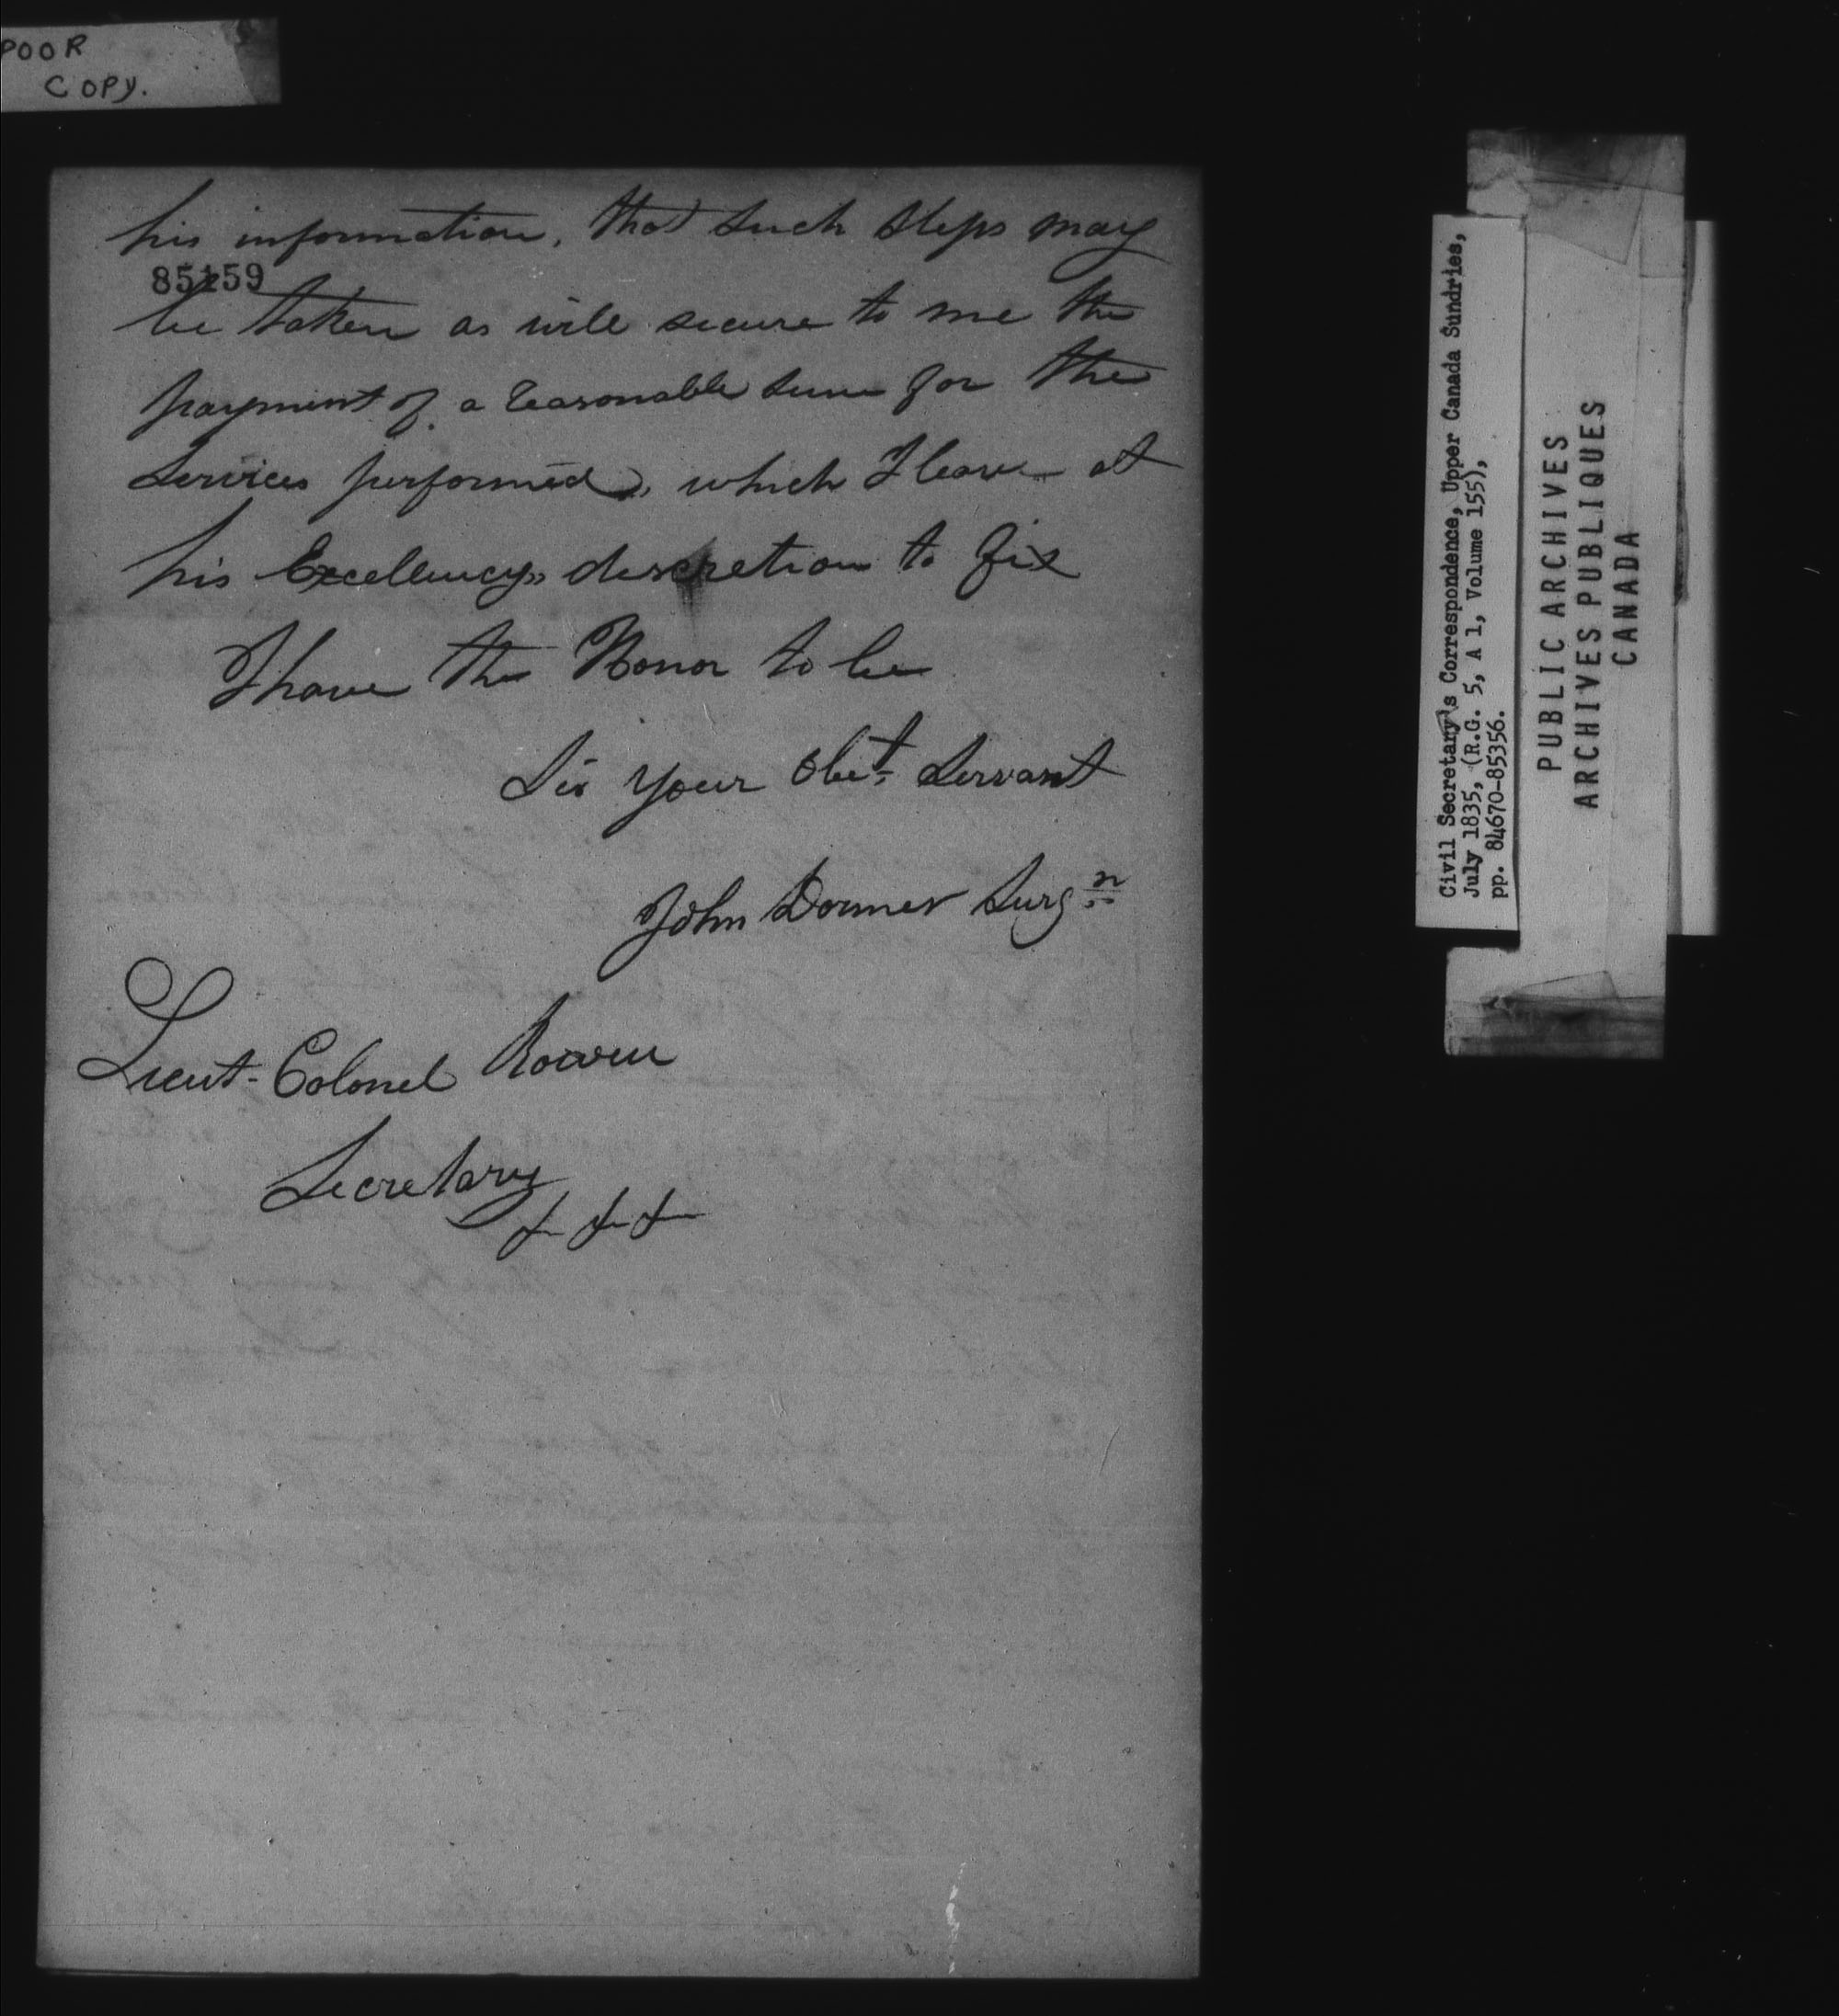 POOR
COPY.
his information, that such steps may
85159
be taken as will secure to me the
payment of a reasonable sum for the
Services performed, which I leave at
his Excellencys discretion to fix
I have the Honor to be
Sir your Obt. Servant
John Donner Surgn
Lieut-Colonel Rowan
Secretary
&c &c &c
Civil Secretary's Correspondence, Upper Canada Sundries,
July 1835, (R.G. 5, A 1, Volume 155),
pp. 84670-85356.
PUBLIC ARCHIVES
ARCHIVES PUBLIQUES
CANADA